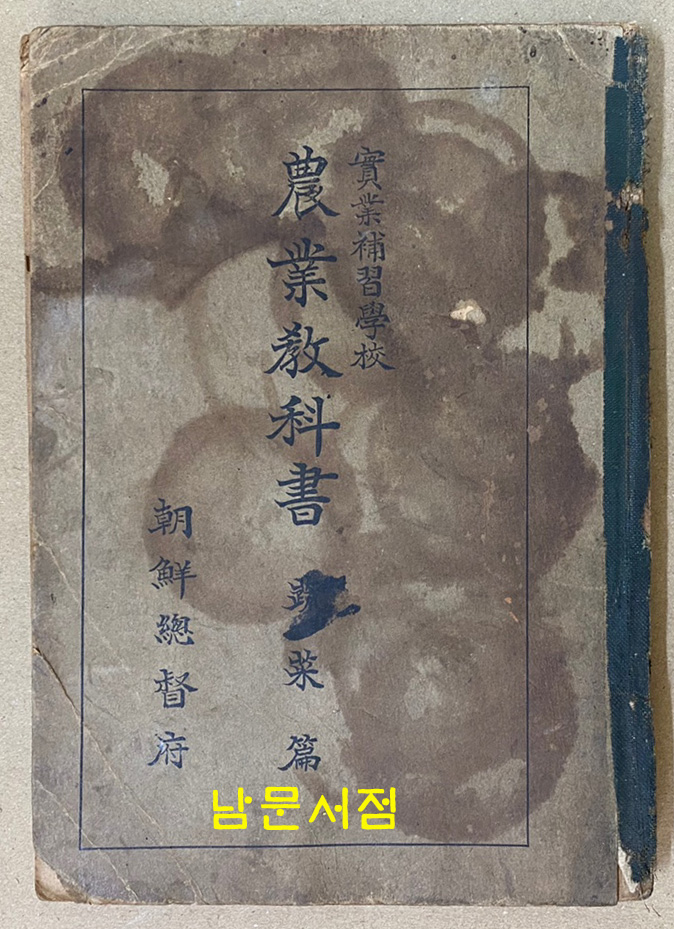 實業補習學校
農業教科書 蔬菜篇
朝鮮總督府
남문서점